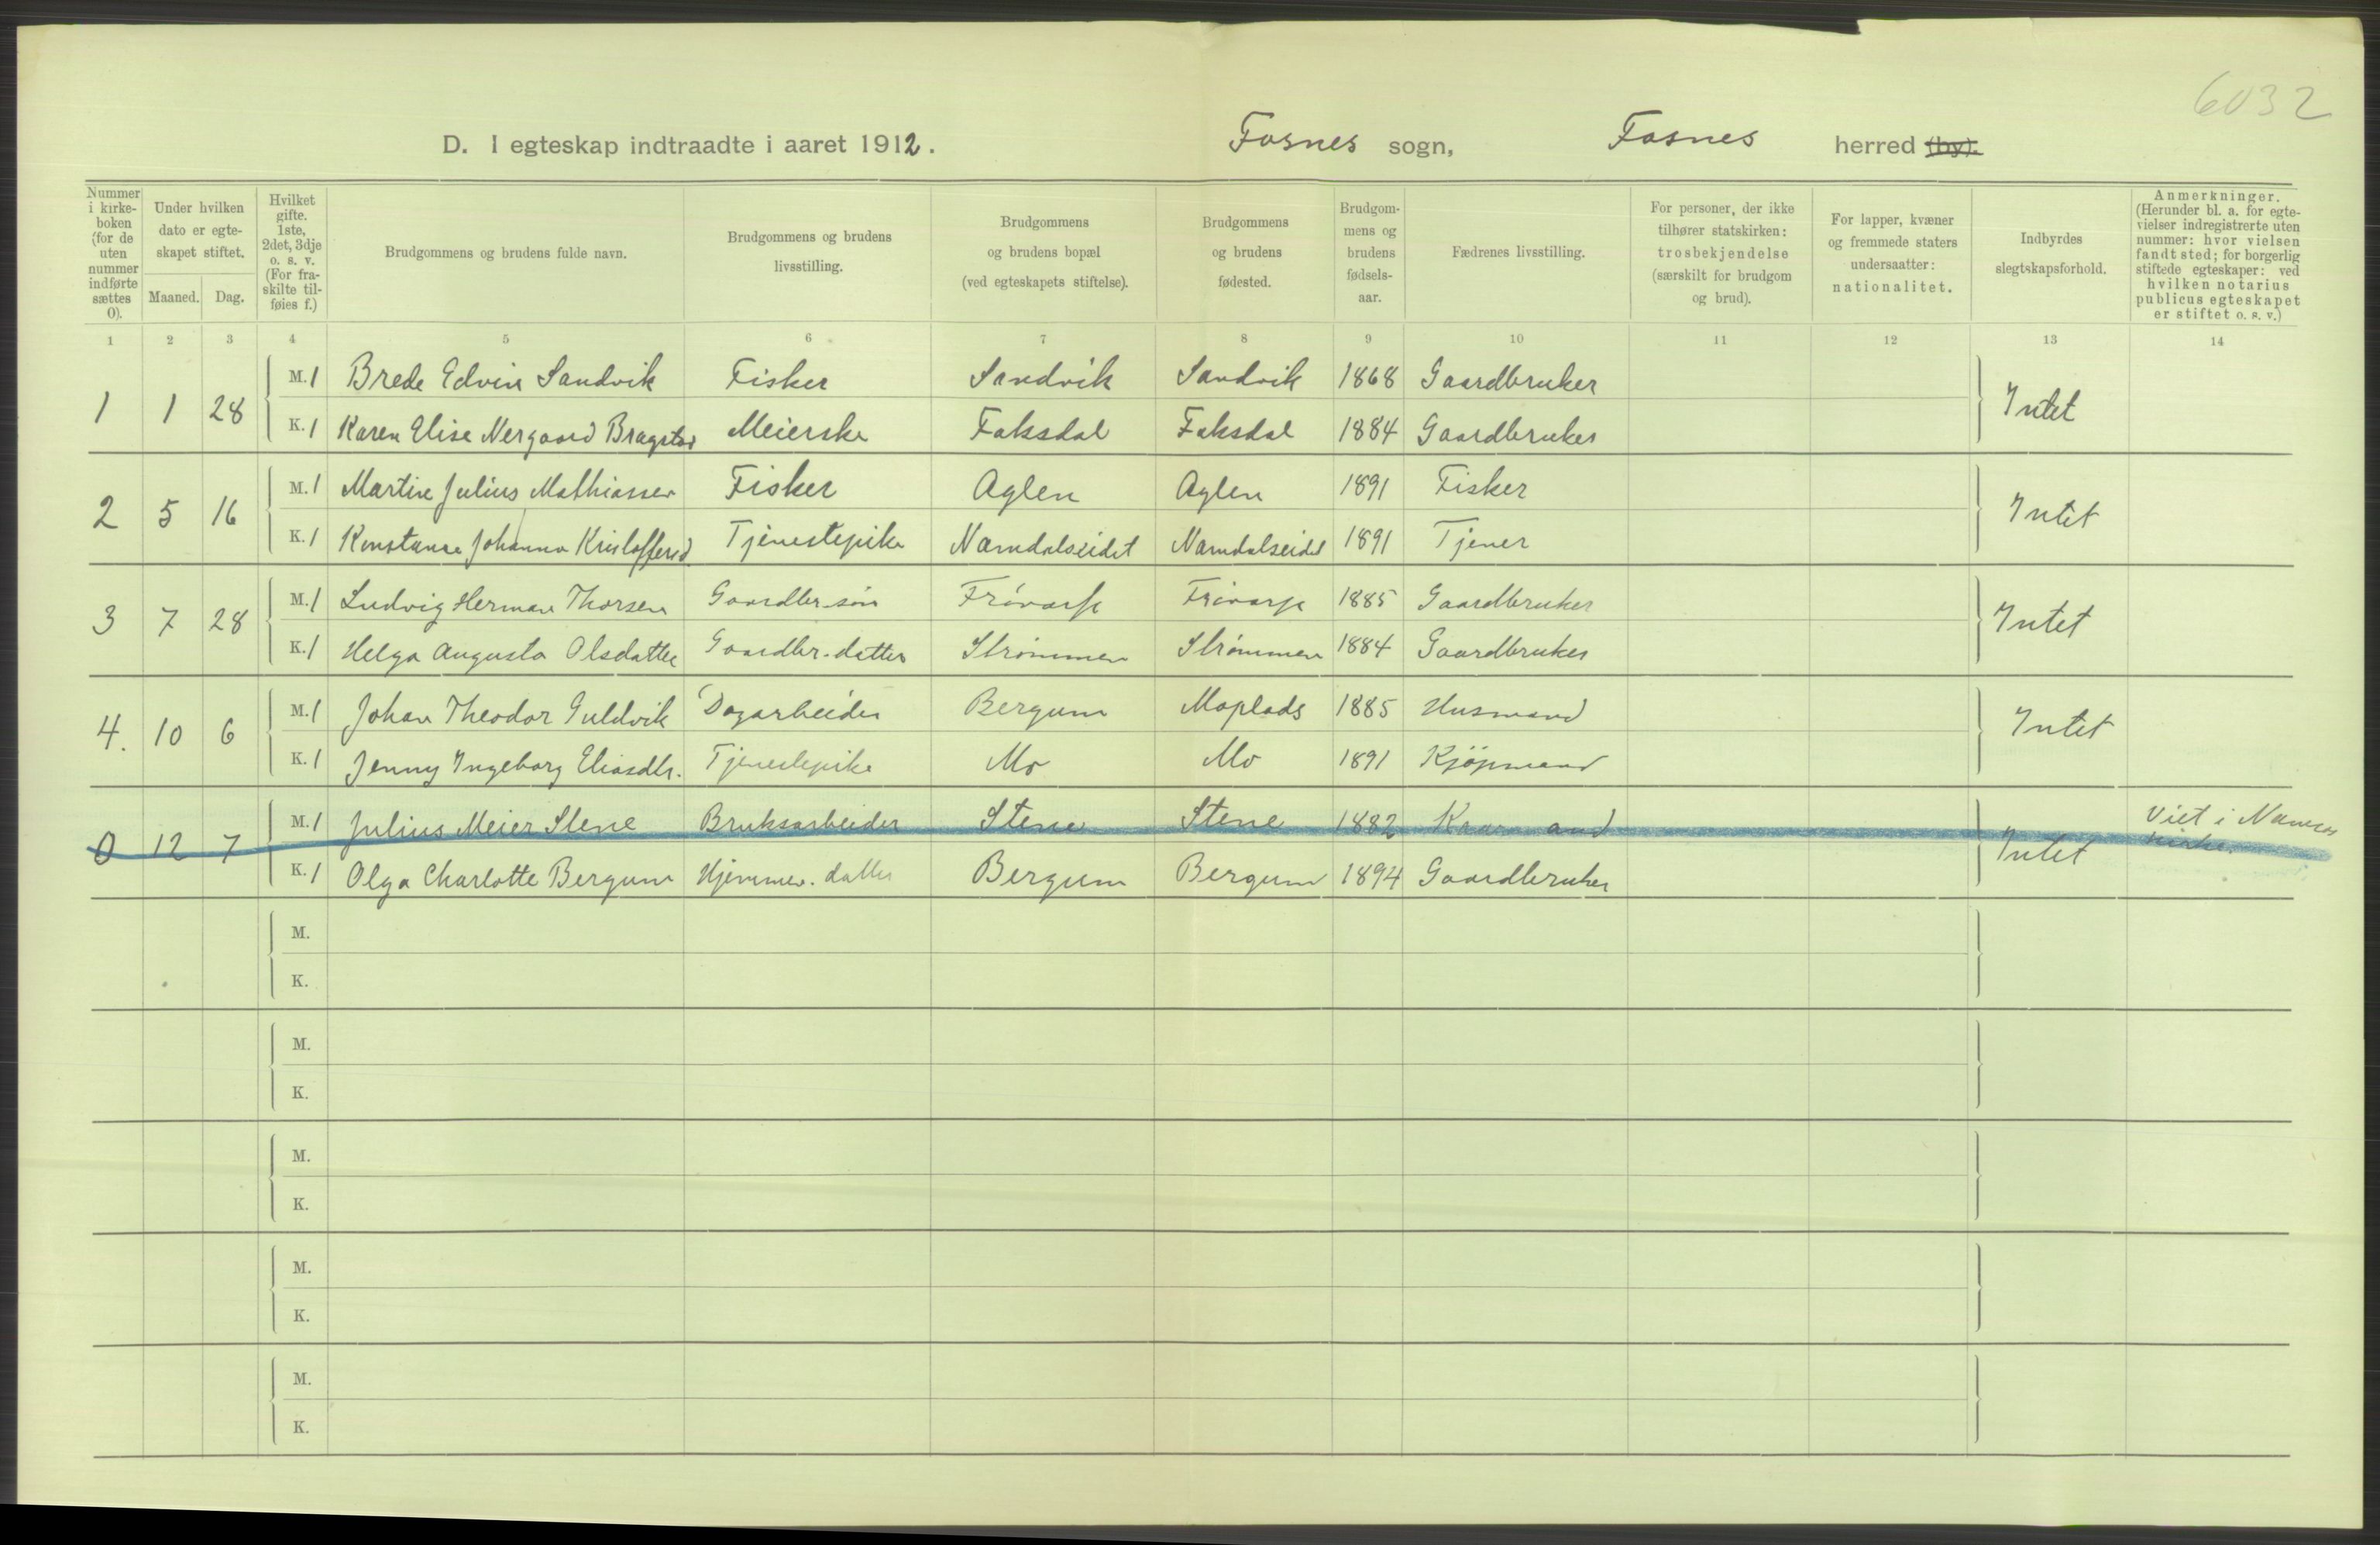 6032
D. I egteskap indtraadte i aaret 1912. Fosnes sogn, Fosnes herred (by).
Nummer i kirkeboken (for de uten nummer indførte sættes 0).
Under hvilken dato er egteskapet stiftet.
Maaned. Dag.
Hvilket gifte. 1ste, 2det, 3dje o. s. v. (For fraskilte tilføies f.)
Brudgommens og brudens fulde navn.
Brudgommens og brudens livsstilling.
Brudgommens og brudens bopæl (ved egteskapets stiftelse).
Brudgommens og brudens fødested.
Brudgommens og brudens fødselsaar.
Fædrenes livsstilling.
For personer, der ikke tilhører statskirken: trosbekjendelse (særskilt for brudgom og brud).
For lapper, kvæner og fremmede staters undersaatter: nationalitet.
Indbyrdes slegtskapsforhold.
Anmerkninger. (Herunder bl. a. for egtevielser indregistrerte uten nummer: hvor vielsen fandt sted; for borgerlig stiftede egteskaper: ved hvilken notarius publicus egteskapet er stiftet o. s. v.)
1 2 3 4 5 6 7 8 9 10 11 12 13 14
1 1 28 M. 1 Brede Edvin Sandvik Fisker Sandvik Sandvik 1868 Gaardbruker Intet
K. 1 Karen Elise Nergaard Bragstad Meierske Faksdal Faksdal 1884 Gaardbruker
2 5 16 M. 1 Martin Julius Mathiassen Fisker Aglen Aglen 1891 Fisker Intet
K. 1 Konstanse Johanna Kristoffersd. Tjenestepike Namdalseidet Namdalseidet 1891 Tjener
3 7 28 M. 1 Ludvig Herman Thorsen Gaardbr.søn 1885 Gaardbruker Intet
K. 1 Helga Augusta Olsdatter Gaardbr.datter Strømmen Strømmen 1884 Gaardbruker
4. 10 6 M. 1 Johan Theodor Guldvik Dagarbeider Bergum Moplads 1885 Husmand Intet
K. 1 Jenny Ingeborg Eliasdtr. Tjenestepike Mo Mo 1891 Kjøpmand
0 12 7 M. 1 Julius Meier Stene Bruksarbeider Stene Stene 1882 Intet Viet i Namsos kirke.
K. 1 Olga Charlotte Bergum Hjemmev. datter Bergum Bergum 1894 Gaardbruker
M.
K.
M.
K.
M.
K.
M.
K.
M.
K.